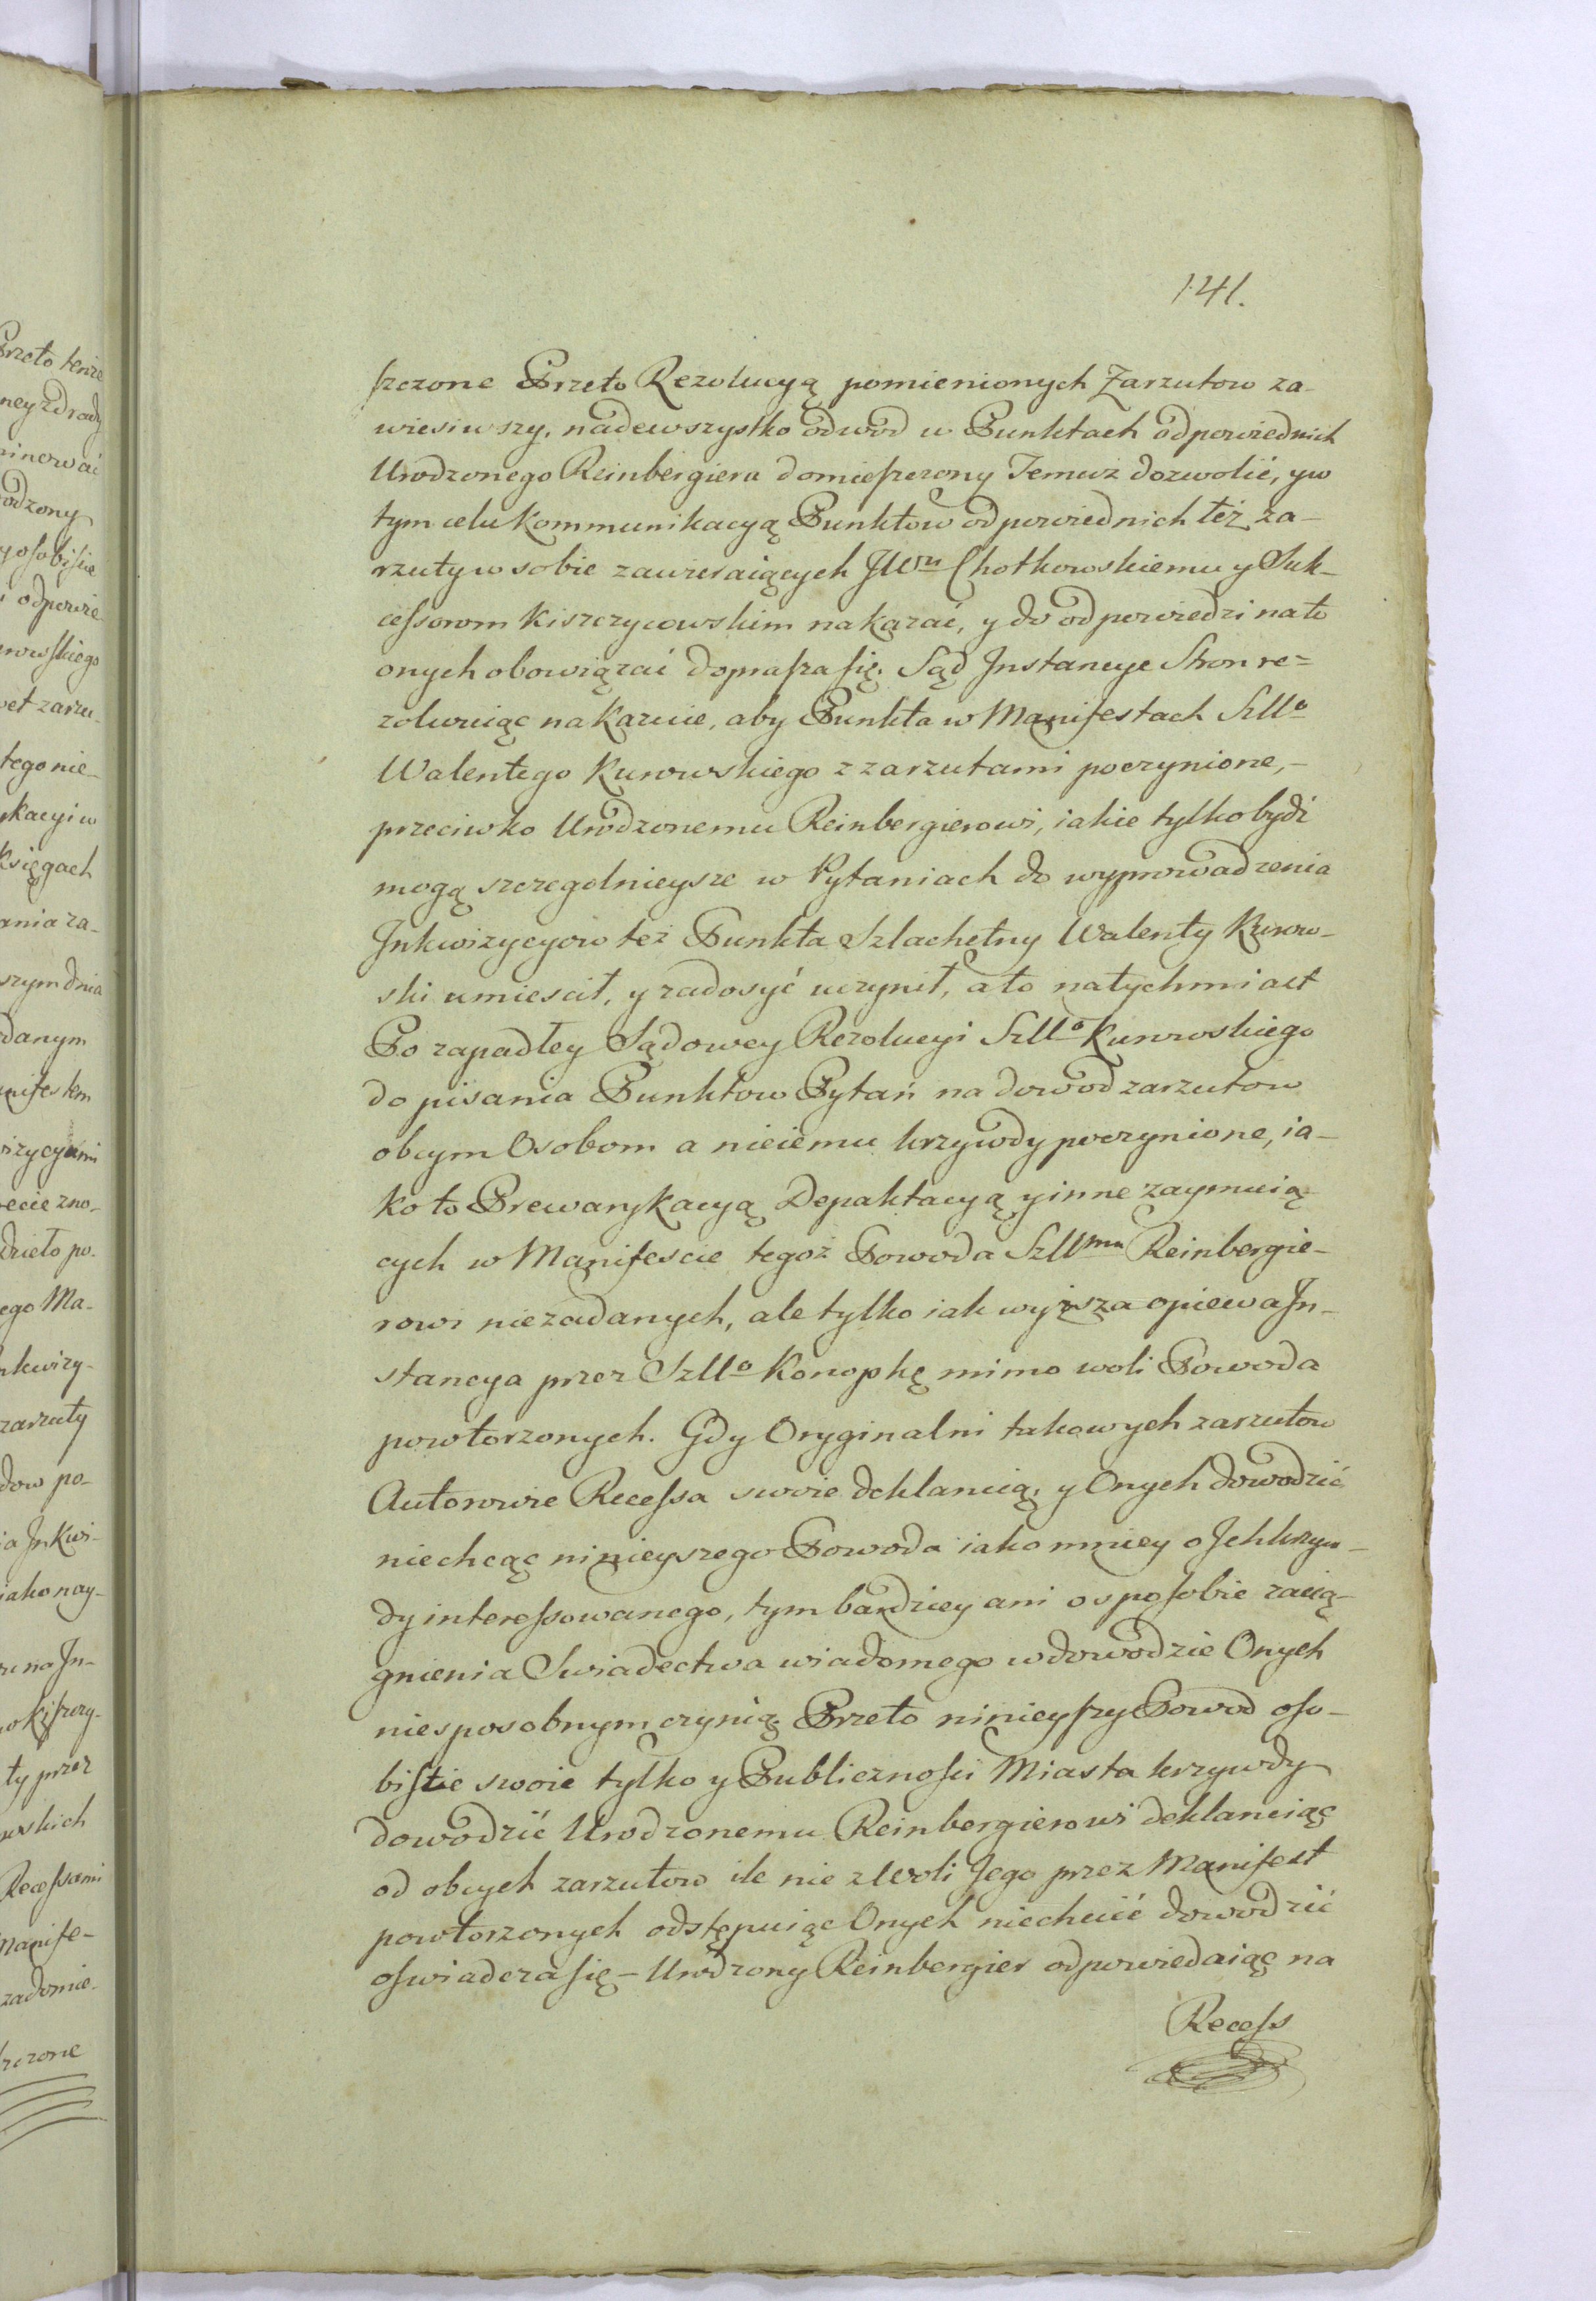 141.
szczone Przeto Rezolucyą pomienionych Zarzutow za-
wiesiwszy, nadewszystko odwod w Punktach odpowiednich
Urodzonego Reinbergiera domieszczony Temuż dozwolić, y w
tym celu Kommunikacyą Punktow odpowiednich też za-
rzuty w sobie zawieraiących JWmu Chotkowskiemu y Suk-
cessorom Kiszczycowskim nakazać, y do odpowiedzi na to
onych obowiązać doprasza się. Sąd Instancye Stron re-
zolwuiąc nakazuie, aby Punkta w Manifestach Szllo
Walentego Kurowskiego z zarzutami poczynione,-
przeciwko Urodzonemu Reinbergierowi, iakie tylko bydź
mogą szczegolnieysze w Pytaniach do wyprowadzenia
Inkwizycyow też Punkta Szlachetny Walenty Kurow-
ski umiescił, y zadosyć uczynił, a to natychmiast
Po zapadłey Sądowey Rezolucyi Szllo Kurowskiego
do pisania Punktow Pytań na dowod zarzutow
obcym Osobom a nieiemu krzywdy poczynione, ia-
ko to Prewarykacyą Depaktacyą y inne zaymuią-
cych w Manifescie tegoż Powoda Szllmu Reinbergie-
rowi niezadanych, ale tylko iak wyższa opiewa In-
stancya przez Szllo Konopkę mimo woli Powoda
powtorzonych. Gdy Oryginalni takowych zarzutow
Autorowie Recessa swoie deklaruią, y Onych dowodzić
niechcąc ninieyszego Powoda iako mniey o Ich krzyw-
dy interessowanego, tym bardziey ani o sposobie zacią-
gnienia Swiadectwa wiadomego w dowodzie Onych
niesposobnym czynią Przeto ninieyszy Powod oso-
biście swoie tylko y Publiczności Miasta krzywdy
dowodzić Urodzonemu Reinbergierowi deklaruiąc
od obcych zarzutow ile nie z Woli Jego przez Manifest
powtorzonych odstępuiąc Onych niechcić dowodzić
oswiadcza się – Urodzony Reinbergier odpowiedaiąc na
Recess